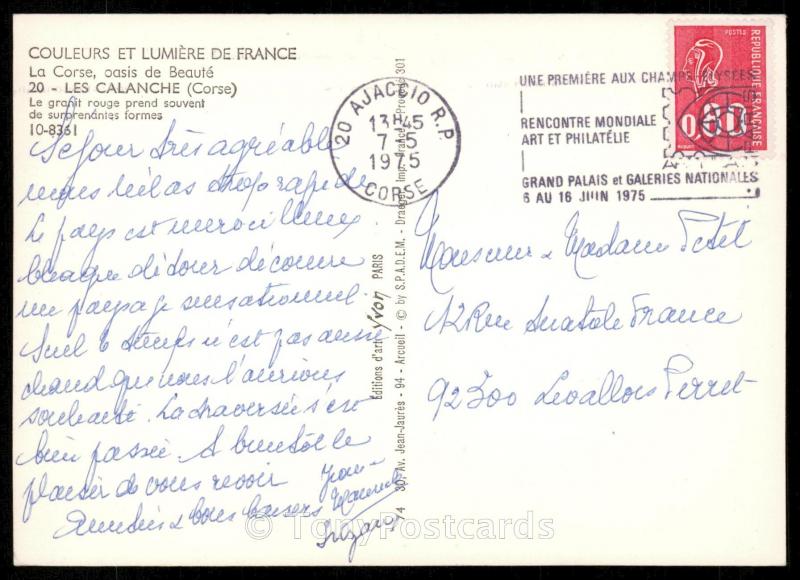 COULEURS ET LUMIÈRE DE FRANCE
La Corse, oasis de Beauté
20 - LES CALANCHE (Corse)
Le granit rouge prend souvent
de surprenantes formes
10-8361
Séjour très agréable
mais hélas trop rapide
Le pays est merveilleux
Chaque détour découvre
un paysage sensationnel.
Seul le temps n'est pas aussi
chaud que nous l'aurions
souhaité. La traversée s'est
bien passée. A bientôt le
plaisir de vous revoir
Amitiés & bons baisers
20 AJACCIO R.P.
13H45
7-5
1975
CORSE
UNE PREMIÈRE AUX CHAMPS ELYSÉES
RENCONTRE MONDIALE
ART ET PHILATÉLIE
GRAND PALAIS et GALERIES NATIONALES
6 AU 16 JUIN 1975
POSTES
RÉPUBLIQUE FRANÇAISE
Monsieur & Madame Petel
12 Rue Anatole France
92300 Levallois Perret
Éditions d'art Yvon PARIS
30, Av. Jean-Jaurès - 94 - Arcueil - © by S.P.A.D.E.M. - Draeger, Imp. France
301
© TonyPostcards